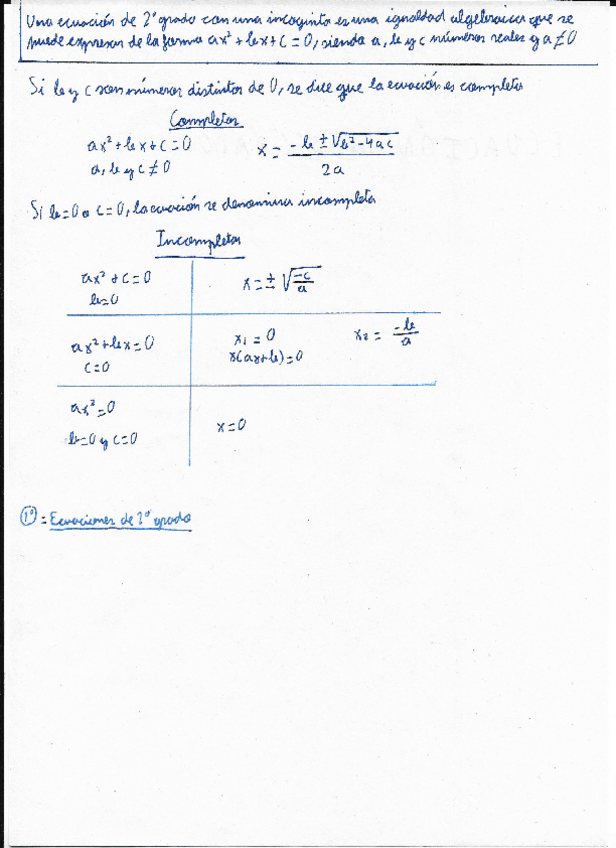 Una ecuación de 2º grado con una incógnita es una igualdad algebraica que se
puede expresar de la forma ax² + bx + c = 0, siendo a, b y c números reales y a ≠ 0
Si b y c son números distintos de 0, se dice que la ecuación es completa
Completas
ax² + bx + c = 0
a, b y c ≠ 0
x = -b ± √b² - 4ac / 2a
Si b = 0 o c = 0, la ecuación se denomina incompleta
Incompletas
ax² + c = 0
b = 0
x = ± √-c/a
ax² + bx = 0
c = 0
x₁ = 0 x₂ = -b/a
x(ax+b) = 0
ax² = 0
b = 0 y c = 0
x = 0
1º = Ecuaciones de 2º grado